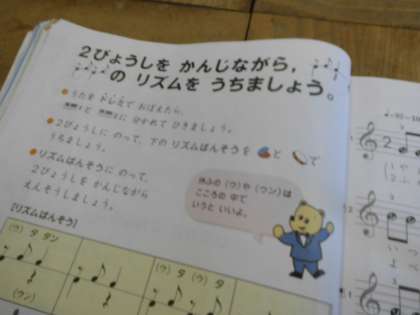 2びょうしを かんじながら，
の リズムを うちましょう。
うたを ドレミで おぼえたら，
と に 分かれて ひきましょう。
2びょうしに のって，下の リズムばんそうを と で
うちましょう。
リズムばんそうに のって，
2びょうしを かんじながら
えんそうしましょう。
休ふの（ウ）や（ウン）は
こころの 中で
いうと いいよ。
［リズムばんそう］
（ウ） タ タン
（ウ） タ （ウ） タ
（ウン）